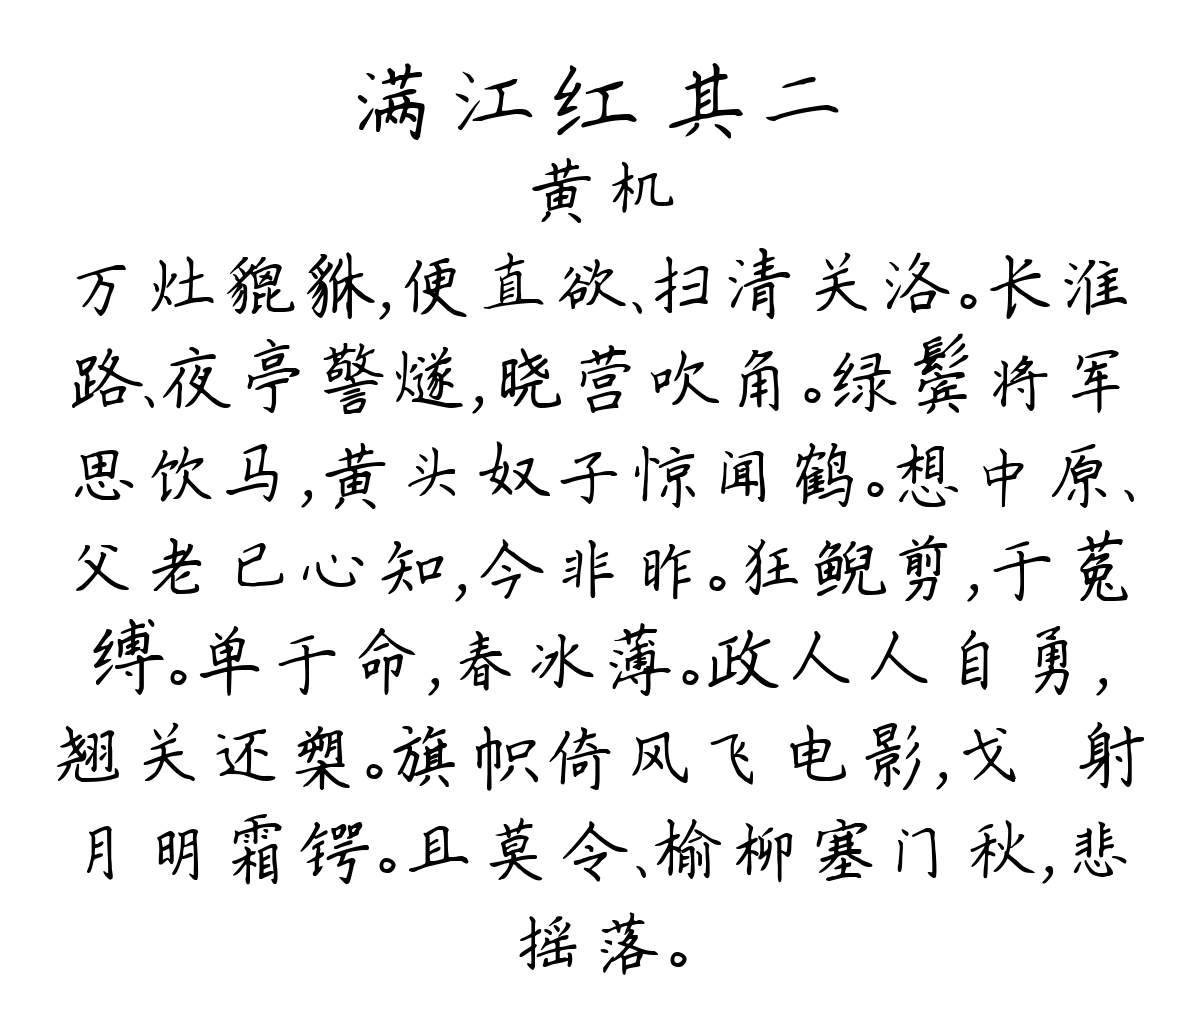 满江红 其二
黄机
万灶貔貅,便直欲、扫清关洛。长淮
路、夜亭警燧,晓营吹角。绿鬓将军
思饮马,黄头奴子惊闻鹤。想中原、
父老已心知,今非昨。
狂鲵剪,于菟
缚。单于命,春冰薄。政人人自勇,
翘关还槊。旗帜倚风飞电影,戈 射
月明霜锷。且莫令、榆柳塞门秋,悲
摇落。